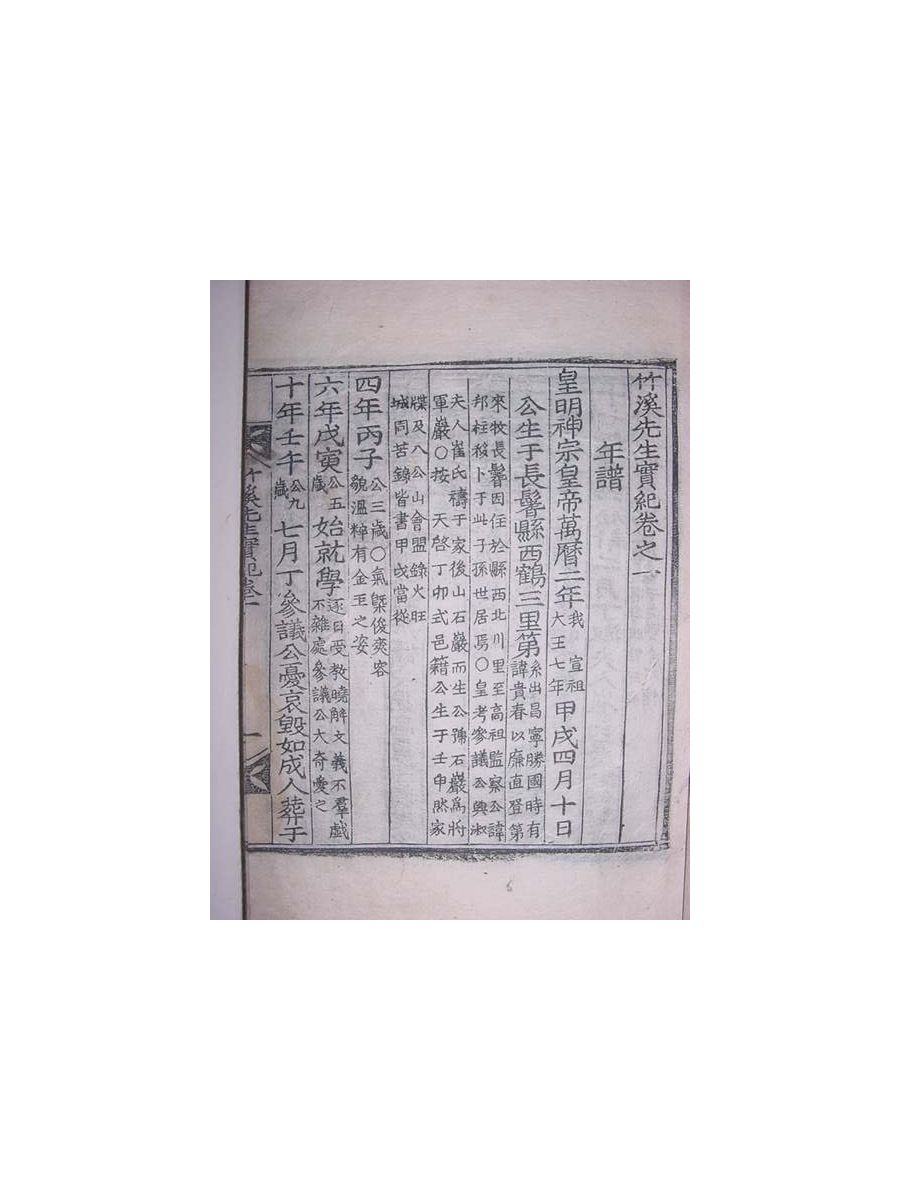 竹溪先生實紀卷之一
年譜
皇明神宗皇帝萬曆二年我 宣祖大王七年甲戌四月十日
公生于長鬐縣西鶴三里第系出昌寧勝國時有諱貴春以廉直登第
來牧長鬐因任於縣西北川里至高祖監察公諱
邦柱移卜于此子孫世居焉○皇考參議公興淑
夫人崔氏禱于家後山石巖而生公號石巖爲將
軍巖○按 天啓丁卯式邑籍公生于壬申然家
牒及八公山會盟錄火旺
城同苦錄皆書甲戌當從
四年丙子公三歲○氣槩俊爽容貌溫粹有金玉之姿
六年戊寅公五歲始就學逐日受敎曉解文義不羣戱不雜處參議公大奇愛之
十年壬午公九歲七月丁參議公憂哀毁如成人葬于
竹溪先生實紀卷一
一